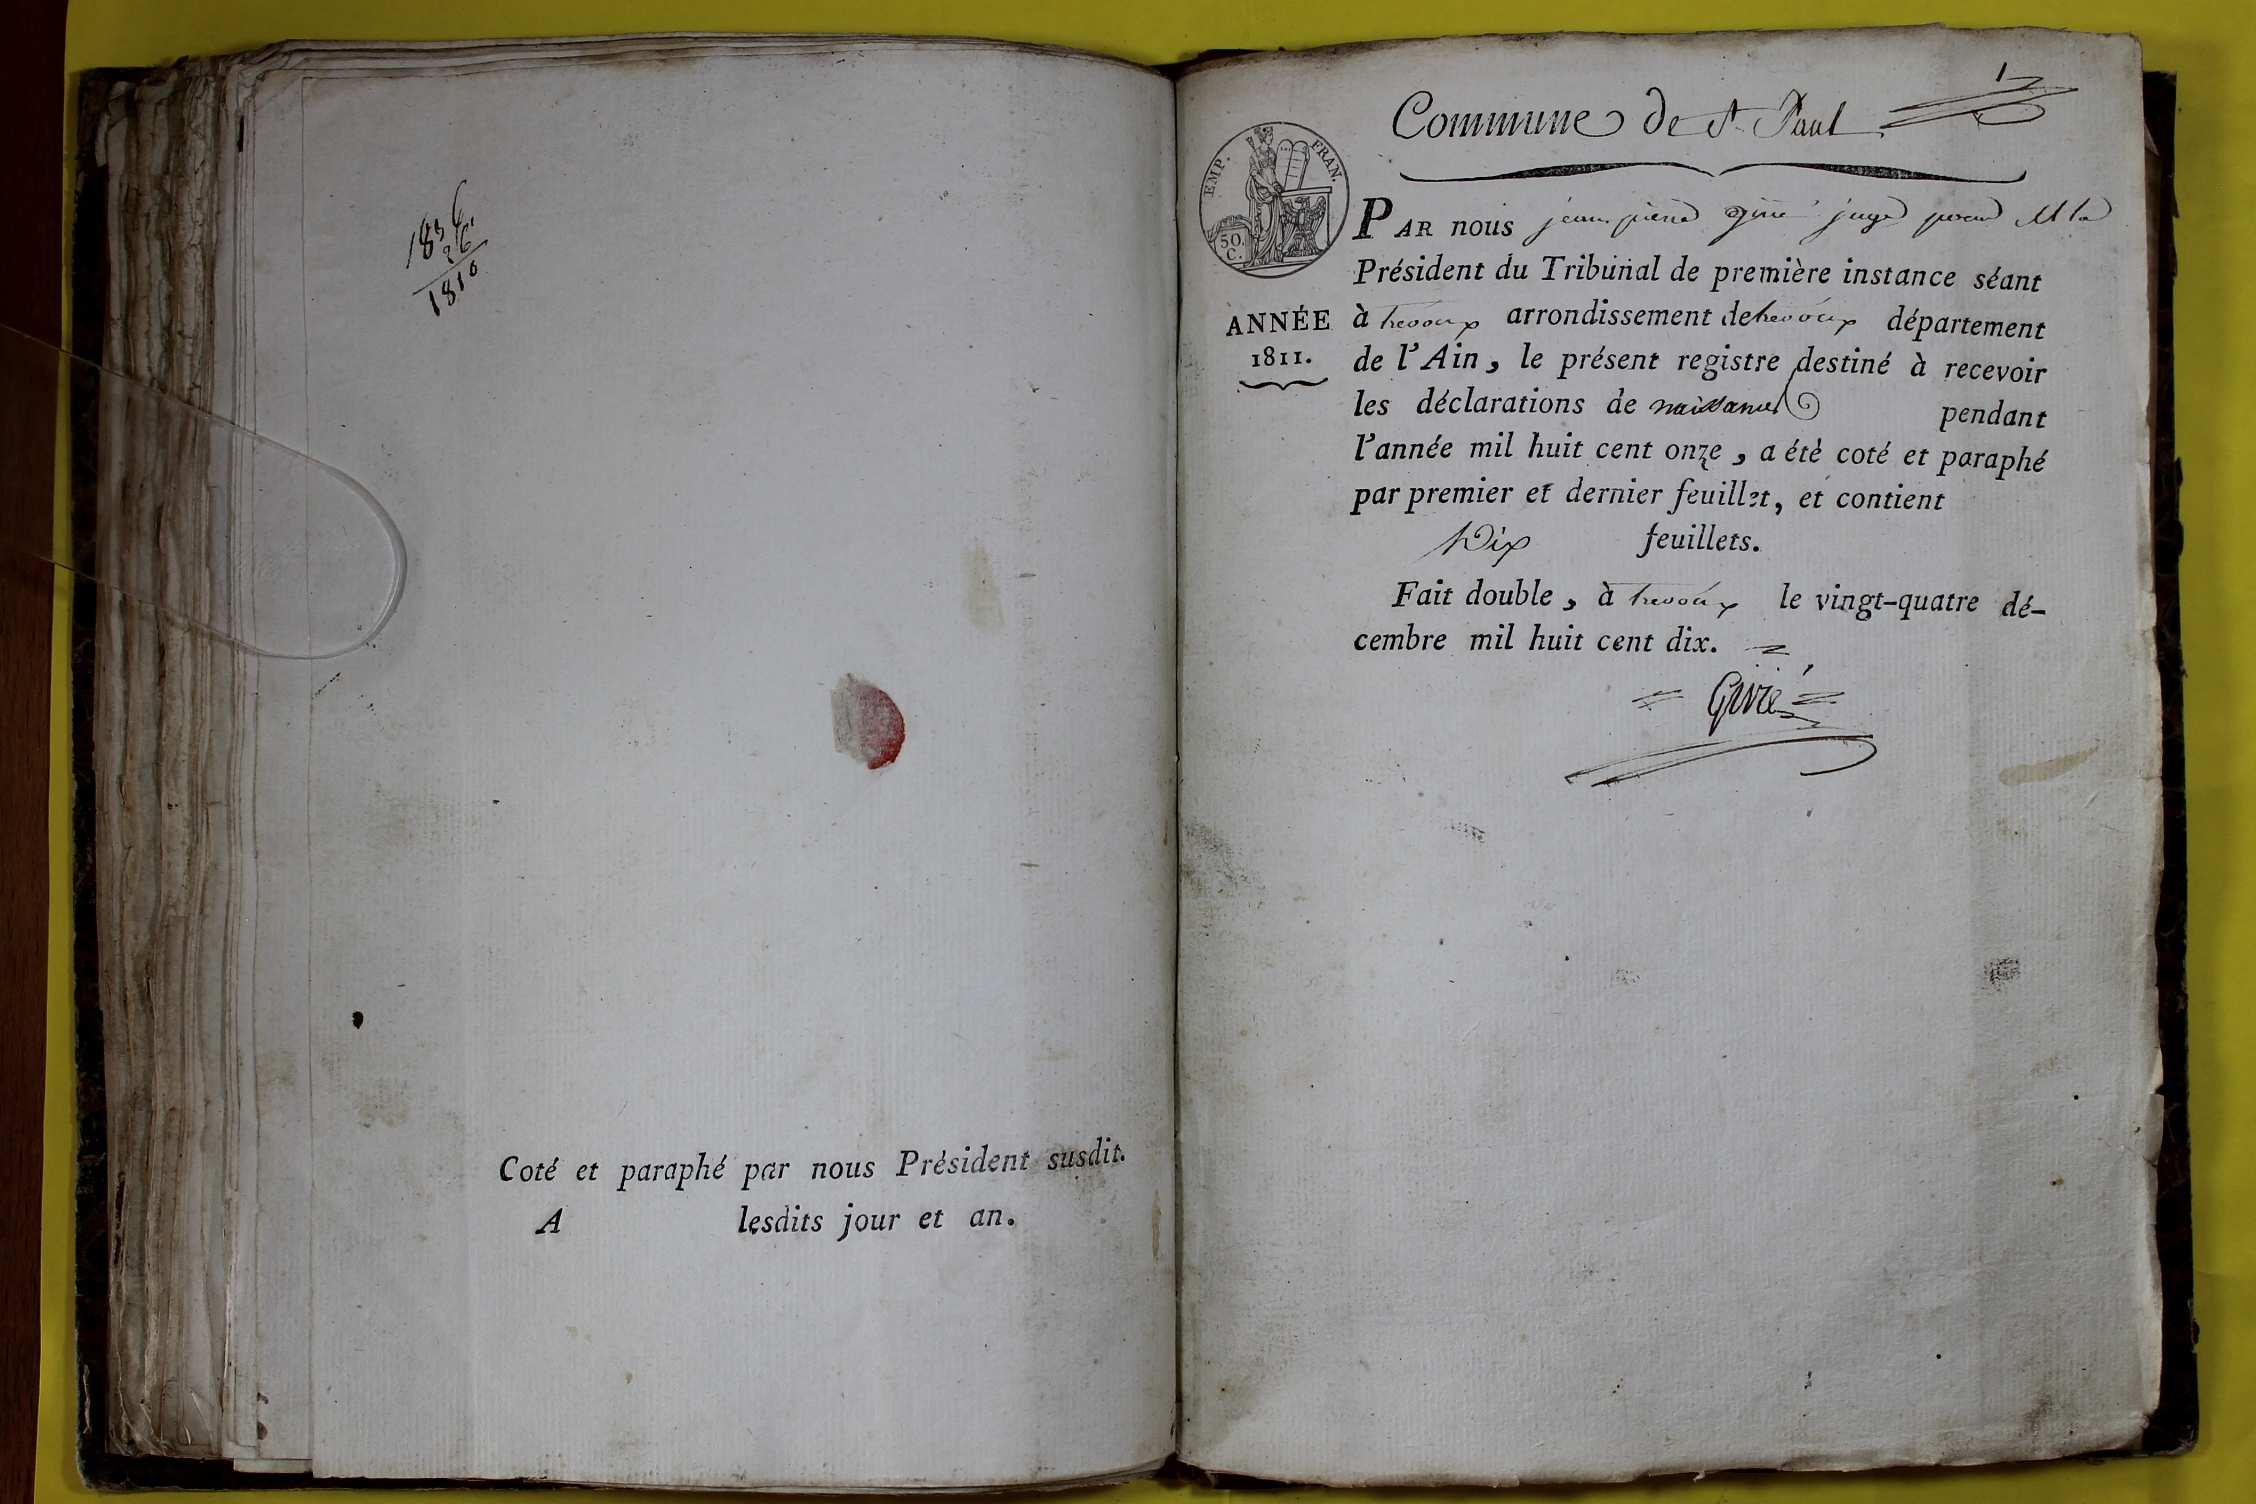 1836
26
1810
Coté et paraphé par nous Président susdit.
A lesdits jour et an.
1
Commune de St Paul
EMP. FRAN.
50.
C.
ANNÉE
1811.
PAR nous jean pierre Givré juge pour M le
Président du Tribunal de première instance séant
à trevoux arrondissement de trevoux département
de l'Ain, le présent registre destiné à recevoir
les déclarations de naissances pendant
l'année mil huit cent onze, a été coté et paraphé
par premier et dernier feuillet, et contient
Dix feuillets.
Fait double, à trevoux le vingt-quatre dé-
cembre mil huit cent dix.
Givré